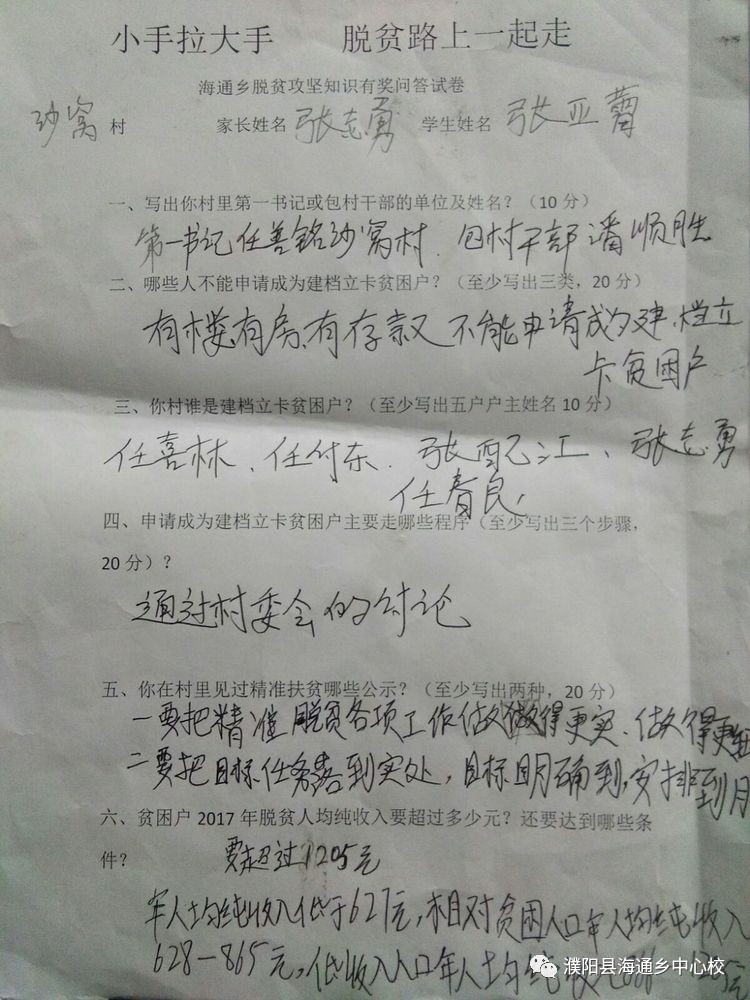 小手拉大手 脱贫路上一起走
海通乡脱贫攻坚知识有奖问答试卷
沙窝 村 家长姓名 张志勇 学生姓名 张亚蕾
一、写出你村里第一书记或包村干部的单位及姓名？（10 分）
第一书记任善铭沙窝村. 包村干部潘顺胜
二、哪些人不能申请成为建档立卡贫困户？（至少写出三类，20 分）
有楼、有房、有存款又不能申请成为建档立
卡贫困户
三、你村谁是建档立卡贫困户？（至少写出五户户主姓名 10 分）
任喜林、任付东. 张配江、张志勇
任春良,
四、申请成为建档立卡贫困户主要走哪些程序（至少写出三个步骤，
20 分）？
通过村委会的讨论
五、你在村里见过精准扶贫哪些公示？（至少写出两种，20 分）
一要把精准脱贫各项工作做得更实、做得更细
二要把目标任务落到实处，目标明确到,安排到月
六、贫困户 2017 年脱贫人均纯收入要超过多少元？还要达到哪些条
件？ 要超过1205元
年人均纯收入低于627元，相对贫困人口年人均纯收入
628—865元，低收入人口年人均纯收
濮阳县海通乡中心校